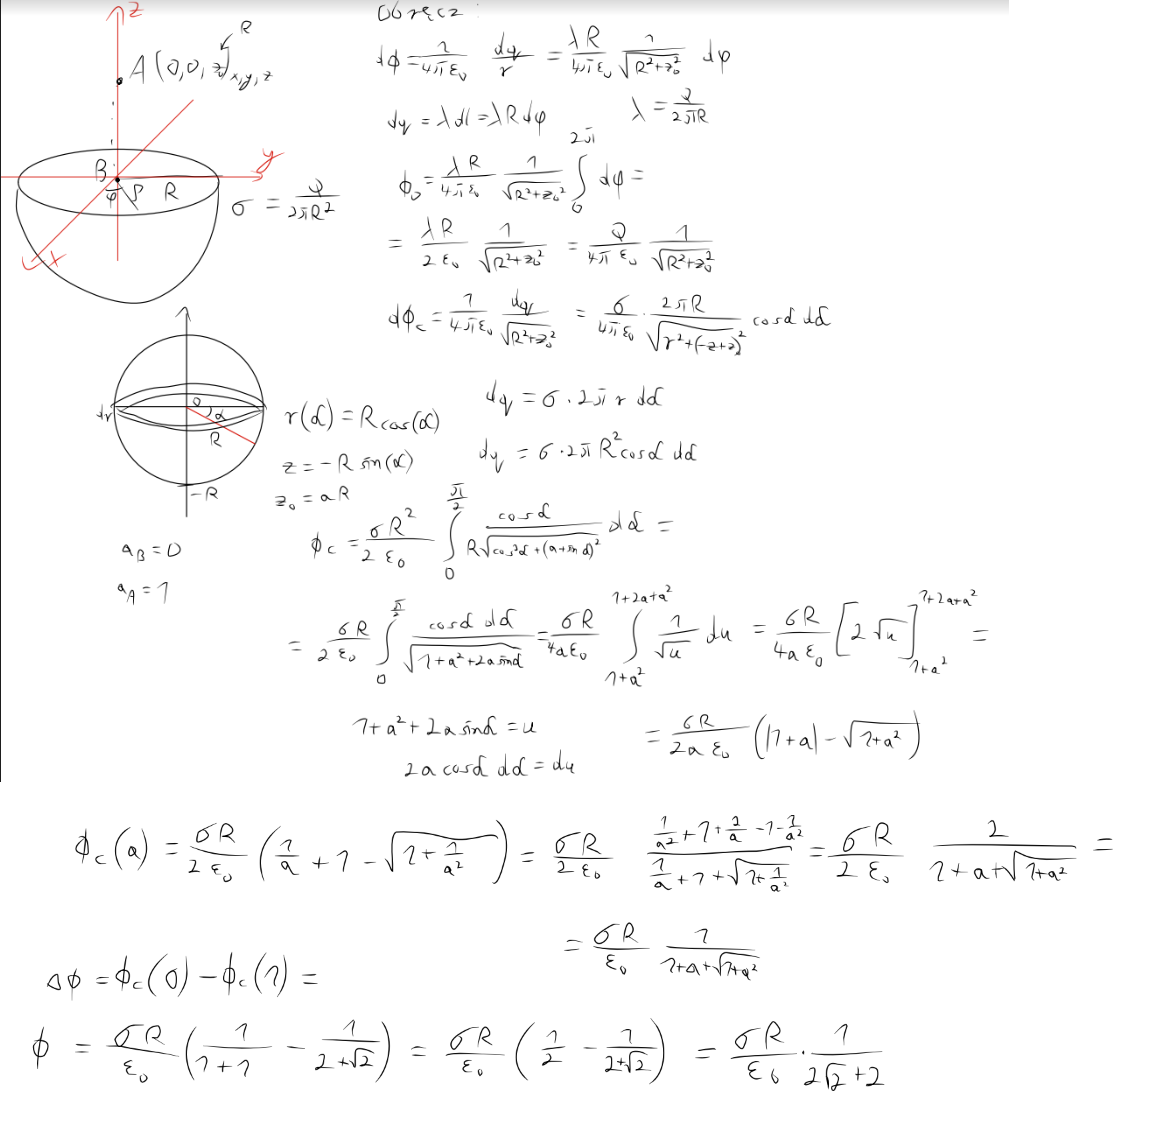 z
R
A(0,0,z₀)ₓ,ᵧ,z
B
y
φ ρ R
x
σ = Q/(2πR²)
Obręcz :
dϕ = 1/(4πε₀) dq/r = λR/(4πε₀) 1/√(R²+z₀²) dφ
dq = λdl = λRdφ λ = Q/(2πR)
ϕ₀ = λR/(4πε₀) 1/√(R²+z₀²) ∫₀^{2π} dφ =
= λR/(2ε₀) 1/√(R²+z₀²) = Q/(4πε₀) 1/√(R²+z₀²)
dϕ_c = 1/(4πε₀) dq/√(R²+z₀²) = σ/(4πε₀) · 2πR/√(r²+(-z+z)²) cosα dα
dr
0 α
R
-R
r(α) = R cos(α)
z = -R sin(α)
z₀ = aR
dq = σ · 2π r dα
dq = σ · 2πR² cosα dα
a_B = 0
a_A = 1
ϕ_c = σR²/(2ε₀) ∫₀^{π/2} cosα/(R√(cos²α+(a+sinα)²)) dα =
= σR/(2ε₀) ∫₀^{π/2} cosα dα/√(1+a²+2a sinα) = σR/(4aε₀) ∫_{1+a²}^{1+2a+a²} 1/√u du = σR/(4aε₀) [2√u]_{1+a²}^{1+2a+a²} =
1+a²+2a sinα = u
2a cosα dα = du
= σR/(2aε₀) (|1+a| - √(1+a²))
ϕ_c(a) = σR/(2ε₀) (1/a + 1 - √(1+1/a²)) = σR/(2ε₀) (1/a²+1+2/a-1-1/a²)/(1/a+1+√(1+1/a²)) = σR/(2ε₀) 2/(1+a+√(1+a²)) =
= σR/ε₀ 1/(1+a+√(1+a²))
Δϕ = ϕ_c(0) - ϕ_c(1) =
ϕ = σR/ε₀ (1/(1+1) - 1/(2+√2)) = σR/ε₀ (1/2 - 1/(2+√2)) = σR/ε₀ · 1/(2√2+2)